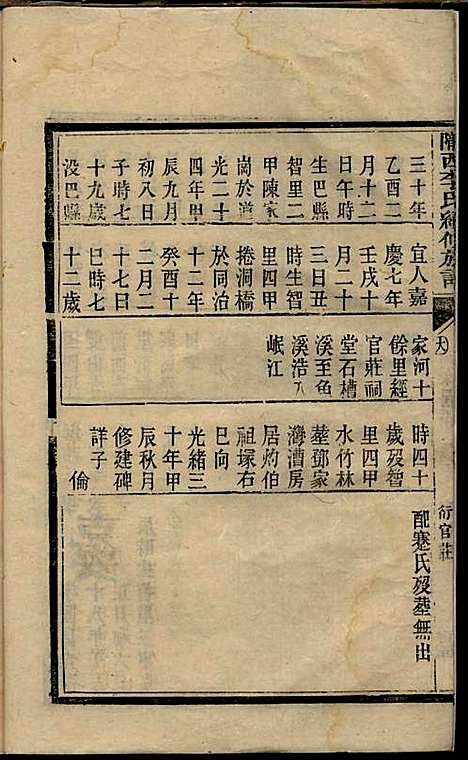 隴西李氏續修族譜
三十年
乙酉二
月十二
日午時
生巴縣
智里二
甲陳家
崗於道
光二十
四年甲
辰九月
初八日
子時七
十九歲
没巴縣
宜人嘉
慶七年
壬戌十
月二十
三日丑
時生智
里四甲
捲洞橋
於同治
十二年
癸酉十
二月二
十七日
巳時七
十二歲
家河十
餘里經
官莊祠
堂石槽
溪至魚
溪浩入
岷江
時四十
歲殁智
里四甲
水竹林
塟鄧家
灣漕房
居灼伯
祖塚右
巳向
光緒三
十年甲
辰秋月
修建碑
詳子
倫
配蹇氏殁塟無出
衍官莊